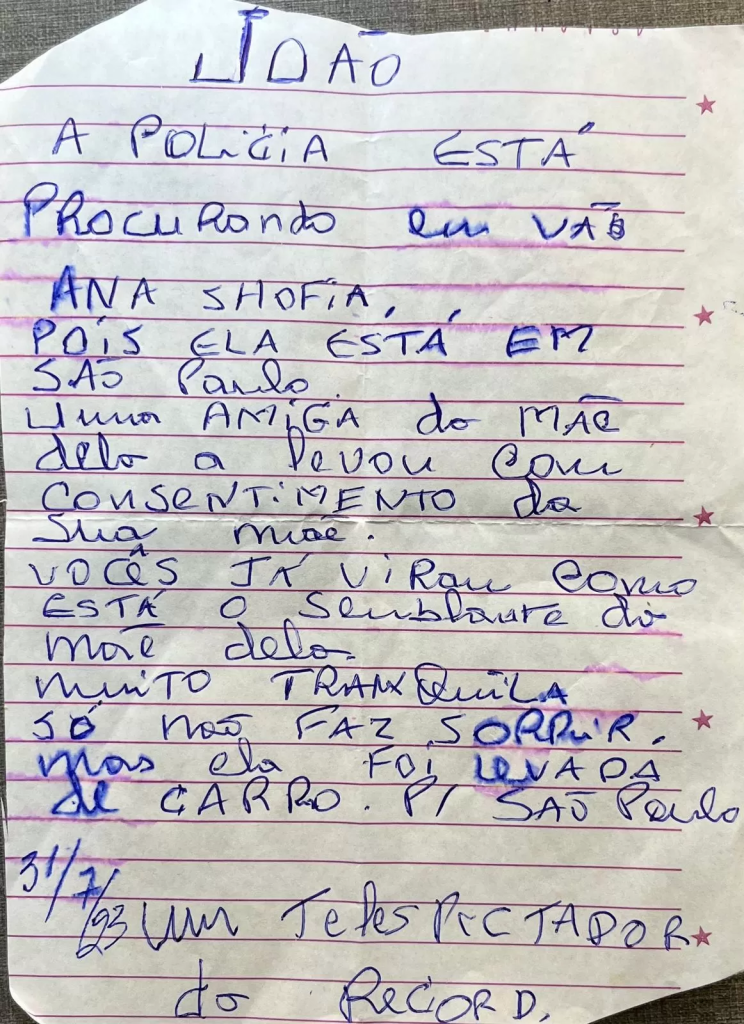 JOÃO
A POLiCiA ESTÁ
PROCURando em VÃO
ANA SHOFiA,
POiS ELA ESTÁ EM
SÃO Paulo.
Uma AMiGA da MÃE
dela a levou com
CONSENTiMENTO da
Sua mãe.
VOCÊS JÁ ViRam como
ESTÁ O Semblante da
mãe dela.
muiTO TRANXQUiLA
SÓ não FAZ SORRir.
mas ela FOi LEVADA
de CARRO. P/ SÃO Paulo
31/7/23 Um TelesPiCTADOR
da RECORD.